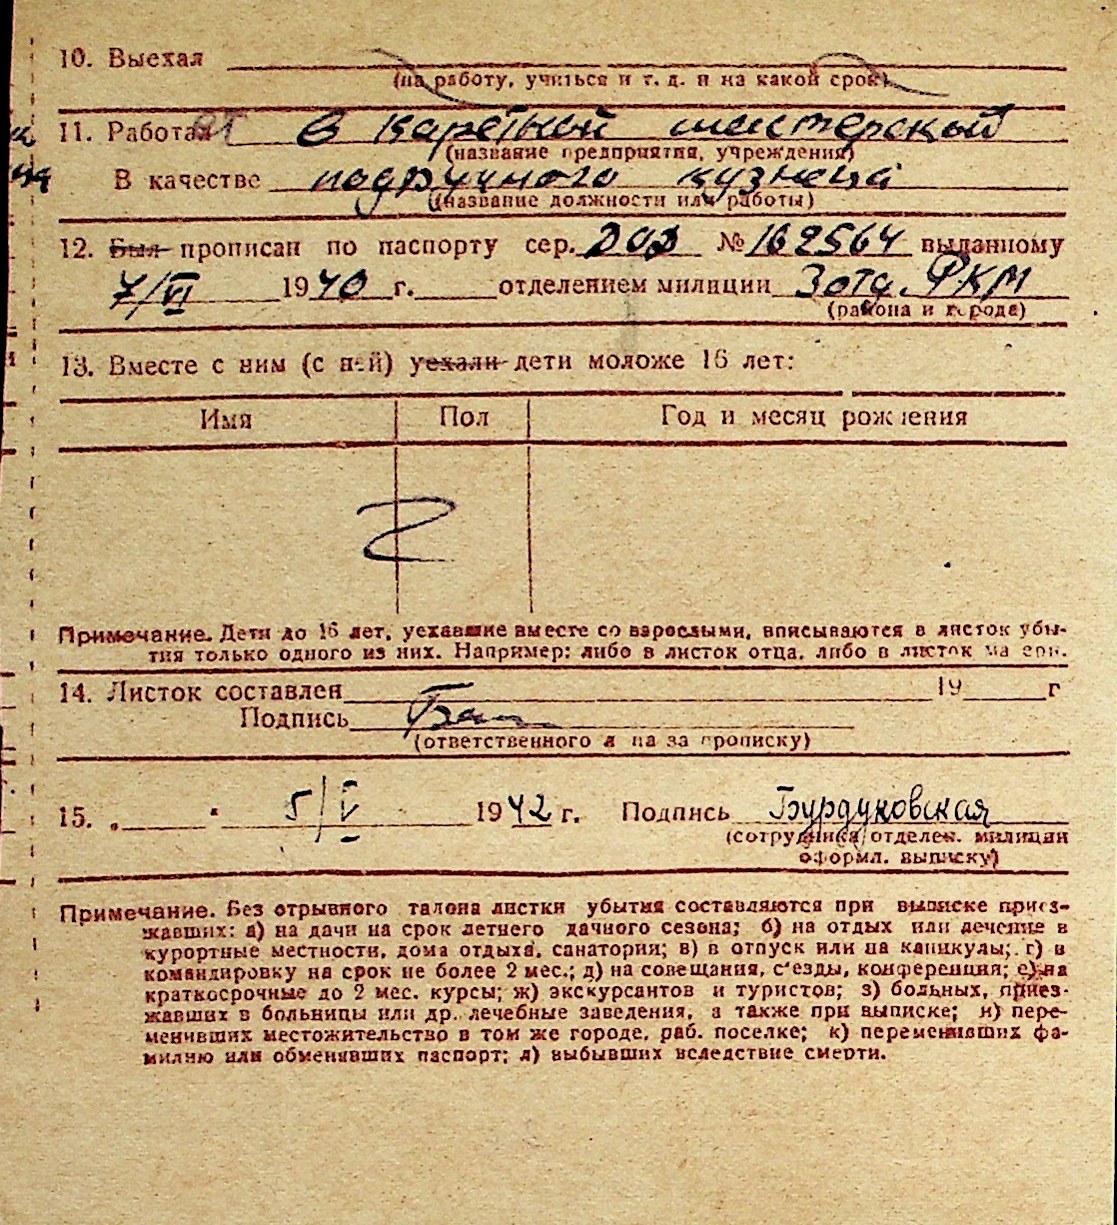 10. Выехал
(на работу, учиться и т. д. и на какой срок)
11. Работает в каретной мастерской
(название предприятия, учреждения)
В качестве подручного кузнеца
(название должности или работы)
12. Был прописан по паспорту сер. № 162564 выданному
7/VI 1940 г. отделением милиции Зота. РКМ
(района и города)
13. Вместе с ним (с ней) уехали дети моложе 16 лет:
Имя Пол Год и месяц рождения
Примечание. Дети до 16 лет, уехавшие вместе со взрослыми, вписываются в листок убы-
тия только одного из них. Например: либо в листок отца, либо в листок матери.
14. Листок составлен 19 г
Подпись
(ответственного лица за прописку)
15. „ " 5/V 1942 г. Подпись Бурдуковская
(сотрудника отделен. милиции
оформл. выписку)
Примечание. Без отрывного талона листки убытия составляются при выписке приез-
жавших: а) на дачи на срок летнего дачного сезона; б) на отдых или лечение в
курортные местности, дома отдыха, санатории; в) в отпуск или на каникулы; г) в
командировку на срок не более 2 мес.; д) на совещания, с'езды, конференции; е) на
краткосрочные до 2 мес. курсы; ж) экскурсантов и туристов; з) больных, приез-
жавших в больницы или др. лечебные заведения, а также при выписке; и) пере-
менивших местожительство в том же городе, раб. поселке; к) переменивших фа-
милию или обменявших паспорт; л) выбывших вследствие смерти.